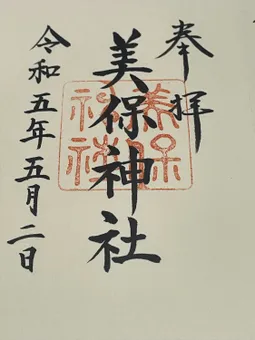 奉拝
美保神社
令和五年五月二日
美保
神社